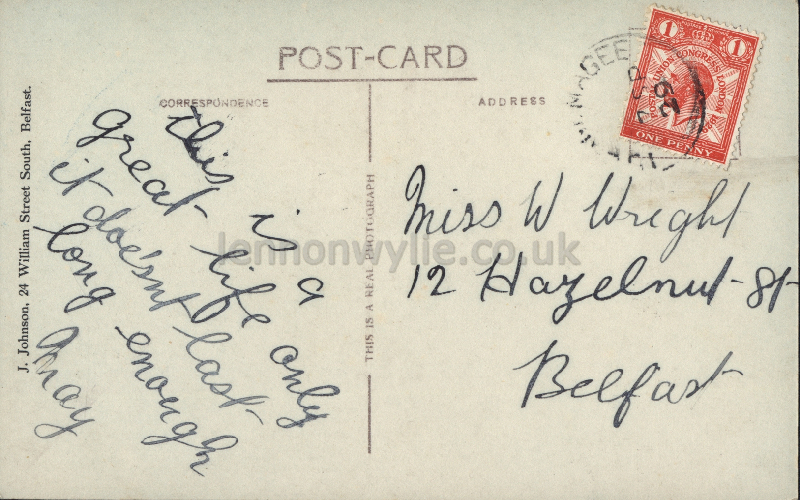 POST-CARD
CORRESPONDENCE
ADDRESS
this is a
great life only
it does'nt last
long enough
May
Miss W Wright
12 Hazelnut St
Belfast
J. Johnson, 24 William Street South, Belfast.
THIS IS A REAL PHOTOGRAPH
1 1
POSTAL UNION CONGRESS LONDON 1929
ONE PENNY
MAGEE
29
lennonwylie.co.uk